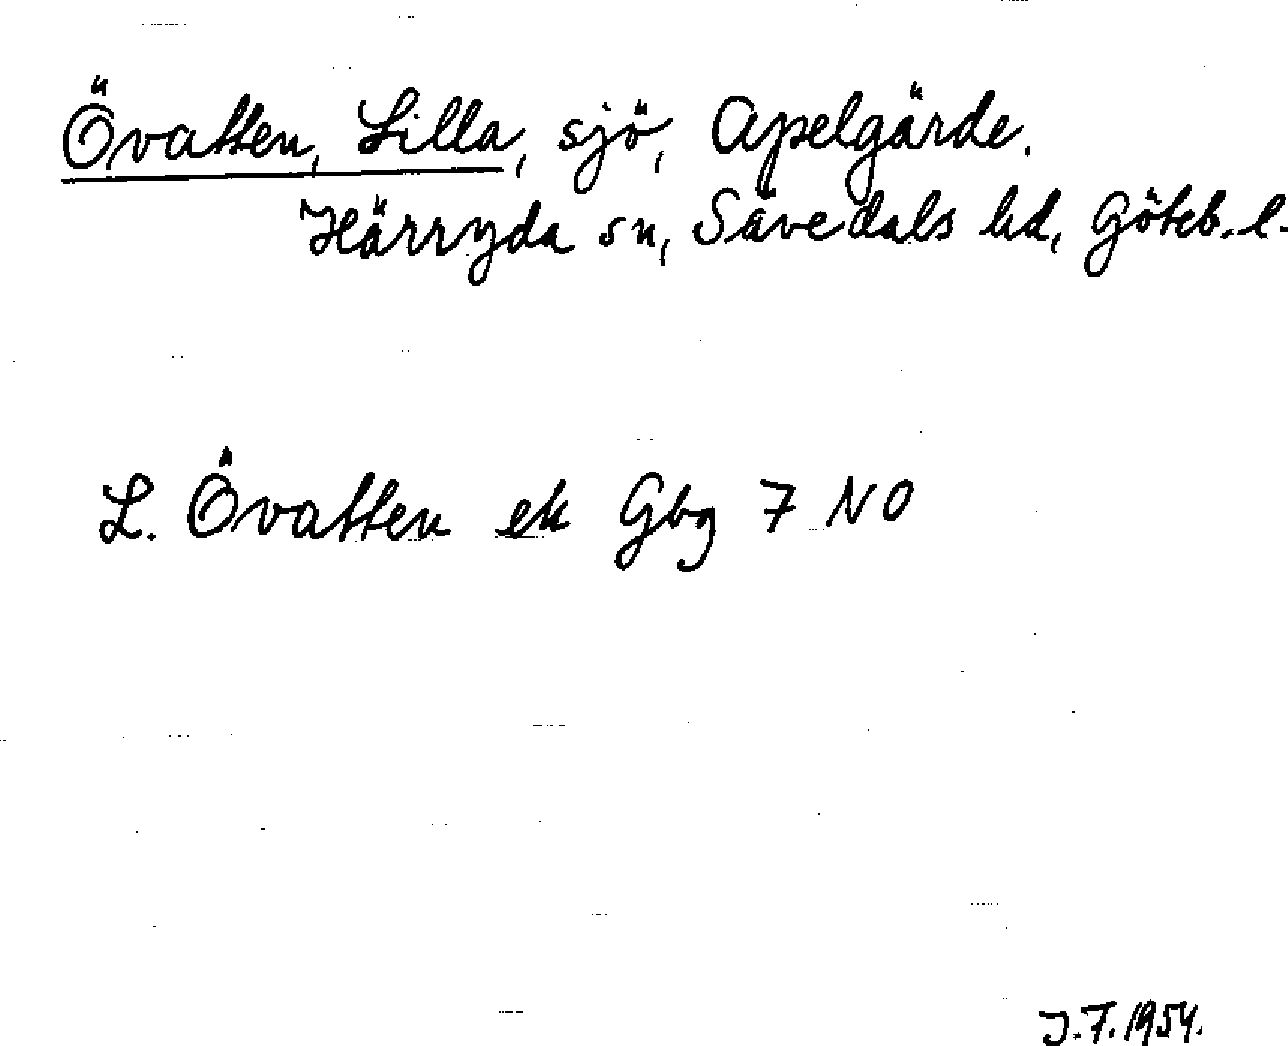 Övatten, Lilla, sjö, Apelgärde.
Härryda sn, Sävedals hd, Göteb. l.
L. Övatten ek Gbg 7 NO
J.F. 1954.